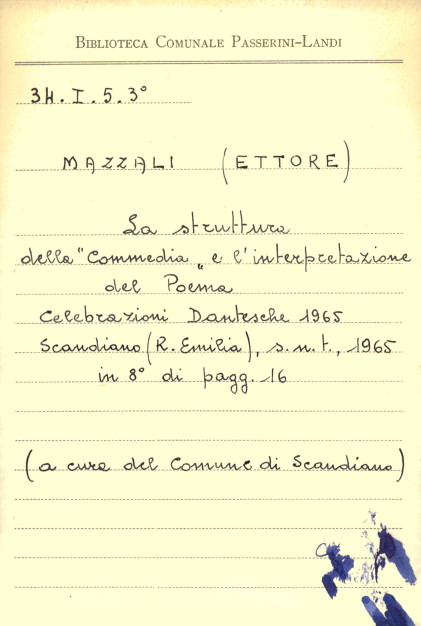 BIBLIOTECA COMUNALE PASSERINI-LANDI
34. I. 5. 3°
MAZZALI (ETTORE)
La struttura
della "Commedia" e l'interpretazione
del Poema
Celebrazioni Dantesche 1965
Scandiano (R. Emilia), s.n.t., 1965
in 8° di pagg. 16
(a cura del Comune di Scandiano)